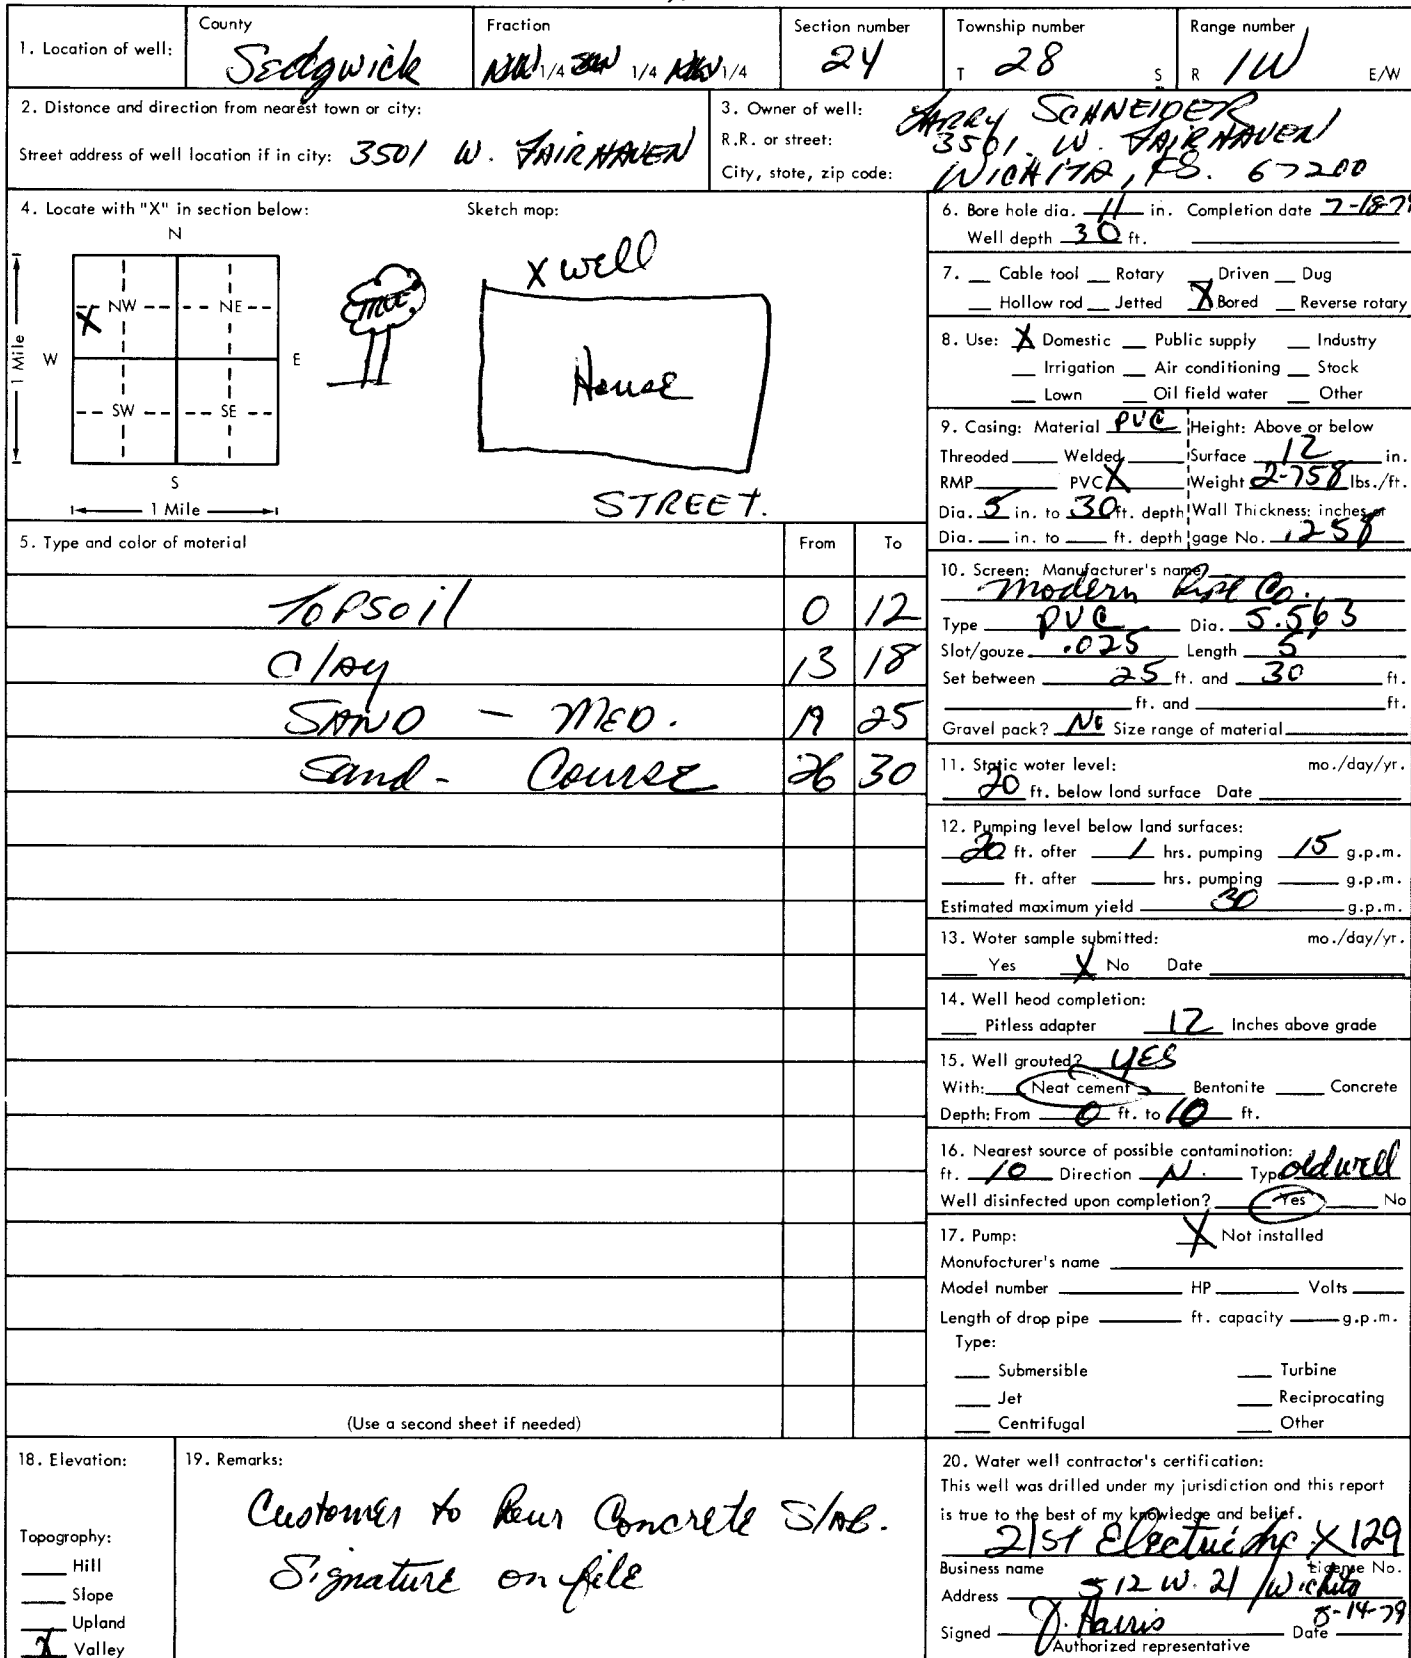 1. Location of well:
County
Sedgwick
Fraction
1/4 1/4 1/4
Section number
24
Township number
T 28 S
Range number
R 1W E/W
2. Distance and direction from nearest town or city:
Street address of well location if in city: 3501 W. FAIRHAVEN
3. Owner of well: LARRY SCHNEIDER
R.R. or street: 3501 W. FAIRHAVEN
City, state, zip code: WICHITA, KS. 67200
4. Locate with "X" in section below:
Sketch map:
N
NW NE
X
W E
SW SE
S
1 Mile
1 Mile
X well
TREE
House
STREET.
5. Type and color of material From To
Topsoil 0 12
Clay 13 18
SAND - MED. 19 25
Sand - Course 26 30
(Use a second sheet if needed)
6. Bore hole dia. 11 in. Completion date 7-18-79
Well depth 30 ft.
7. Cable tool Rotary Driven Dug
Hollow rod Jetted X Bored Reverse rotary
8. Use: X Domestic Public supply Industry
Irrigation Air conditioning Stock
Lawn Oil field water Other
9. Casing: Material PVC Height: Above or below
Threaded Welded Surface 12 in.
RMP PVC X Weight 2.758 lbs./ft.
Dia. 5 in. to 30 ft. depth Wall Thickness: inches or
Dia. in. to ft. depth gage No. .258
10. Screen: Manufacturer's name
Modern Pipe Co.
Type PVC Dia. 5.563
Slot/gauze .025 Length 5'
Set between 25 ft. and 30 ft.
ft. and ft.
Gravel pack? No Size range of material
11. Static water level: mo./day/yr.
20 ft. below land surface Date
12. Pumping level below land surfaces:
20 ft. after 1 hrs. pumping 15 g.p.m.
ft. after hrs. pumping g.p.m.
Estimated maximum yield 30 g.p.m.
13. Water sample submitted: mo./day/yr.
Yes X No Date
14. Well head completion:
Pitless adapter 12 Inches above grade
15. Well grouted? YES
With: Neat cement Bentonite Concrete
Depth: From 0 ft. to 10 ft.
16. Nearest source of possible contamination:
ft. 10 Direction N. Type old well
Well disinfected upon completion? Yes No
17. Pump: X Not installed
Manufacturer's name
Model number HP Volts
Length of drop pipe ft. capacity g.p.m.
Type:
Submersible Turbine
Jet Reciprocating
Centrifugal Other
18. Elevation:
Topography:
Hill
Slope
Upland
X Valley
19. Remarks:
Customer to Pour Concrete Slab.
Signature on file
20. Water well contractor's certification:
This well was drilled under my jurisdiction and this report
is true to the best of my knowledge and belief.
21st Electric Inc X129
Business name License No.
Address 512 W. 21 / Wichita
Signed J. Harris Date 8-14-79
Authorized representative